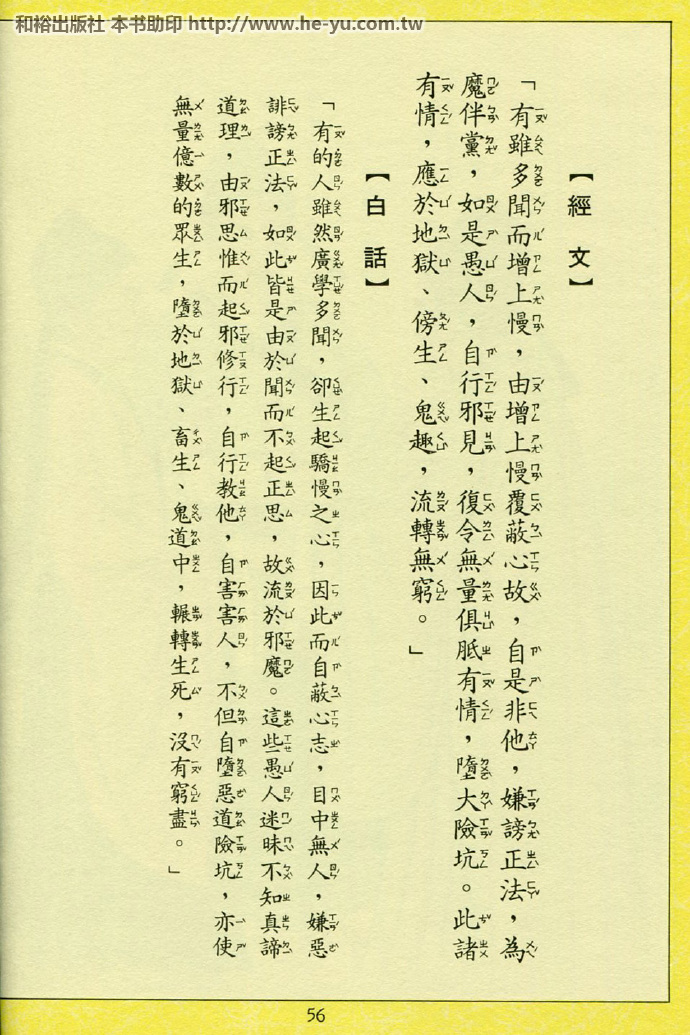 和裕出版社 本书助印 http://www.he-yu.com.tw
【經文】
「有雖多聞而增上慢，由增上慢覆蔽心故，自是非他，嫌謗正法，為
魔伴黨，如是愚人，自行邪見，復令無量俱胝有情，墮大險坑。此諸
有情，應於地獄、傍生、鬼趣，流轉無窮。」
【白話】
「有的人雖然廣學多聞，卻生起驕慢之心，因此而自蔽心志，目中無人，嫌惡
誹謗正法，如此皆是由於聞而不起正思，故流於邪魔。這些愚人迷昧不知真諦
道理，由邪思惟而起邪修行，自行教他，自害害人，不但自墮惡道險坑，亦使
無量億數的眾生，墮於地獄、畜生、鬼道中，輾轉生死，沒有窮盡。」
56